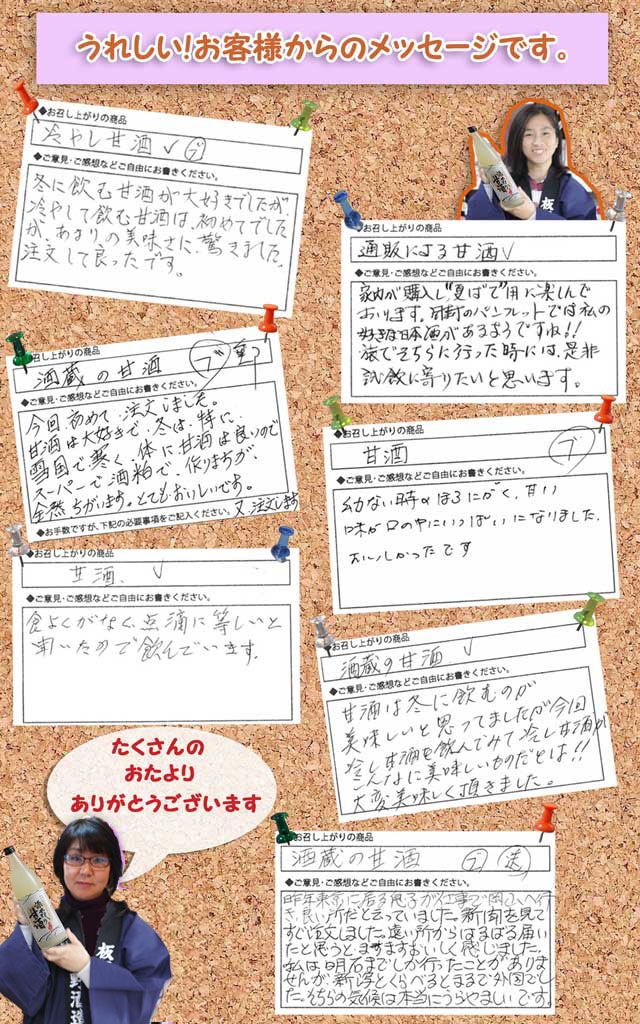 うれしい!お客様からのメッセージです。
◆お召し上がりの商品
冷やし甘酒 ✓ プ
◆ご意見・ご感想などご自由にお書きください。
冬に飲む甘酒が大好きでしたが、
冷やして飲む甘酒は、初めてでした
が、あまりの美味さに、驚きました。
注文して良ったです。
お召し上がりの商品
通販による甘酒 ✓
◆ご意見・ご感想などご自由にお書きください。
家内が購入し"夏ばて"用に楽しんで
おります。同封のパンフレットでは私の
好きな日本酒があるようですね!!
旅でそちらに行った時には、是非
試飲に寄りたいと思います。
お召し上がりの商品
酒蔵の甘酒 プ
◆ご意見・ご感想などご自由にお書きください。
今回初めて、注文しました。
甘酒は大好きで、冬は、特に、
雪国で寒く、体に甘酒は良いので
スーパーで酒粕で、作りますが、
全然ちがいます。とてもおいしいです。
又、注文します
◆お手数ですが、下記の必要事項をご記入ください。
お召し上がりの商品
甘酒 プ
◆ご意見・ご感想などご自由にお書きください。
幼ない時のほろにがく、甘い
味が口の中にいっぱいになりました。
おいしかったです
お召し上がりの商品
甘酒、 ✓
◆ご意見・ご感想などご自由にお書きください。
食よくがなく、点滴に等しいと
聞いたので飲んでいます。
お召し上がりの商品
酒蔵の甘酒 ✓
◆ご意見・ご感想などご自由にお書きください。
甘酒は冬に飲むのが
美味しいと思ってましたが今回
冷し甘酒を飲んでみて冷し甘酒が
こんなに美味しいものだとは!!
大変美味しく頂きました。
たくさんの
おたより
ありがとうございます
お召し上がりの商品
酒蔵の甘酒 プ 送
◆ご意見・ご感想などご自由にお書きください。
昨年東京に居る息子が仕事で岡山へ行
き、良い所だと云っていました。新聞を見て
すぐ注文しました。遠い所からはるばる届い
たと思うとますますおいしく感じました。
私は明石までしか行ったことがありま
せんが新潟とくらべるとまるで外国でし
た。そちらの気候は本当にうらやましいです。